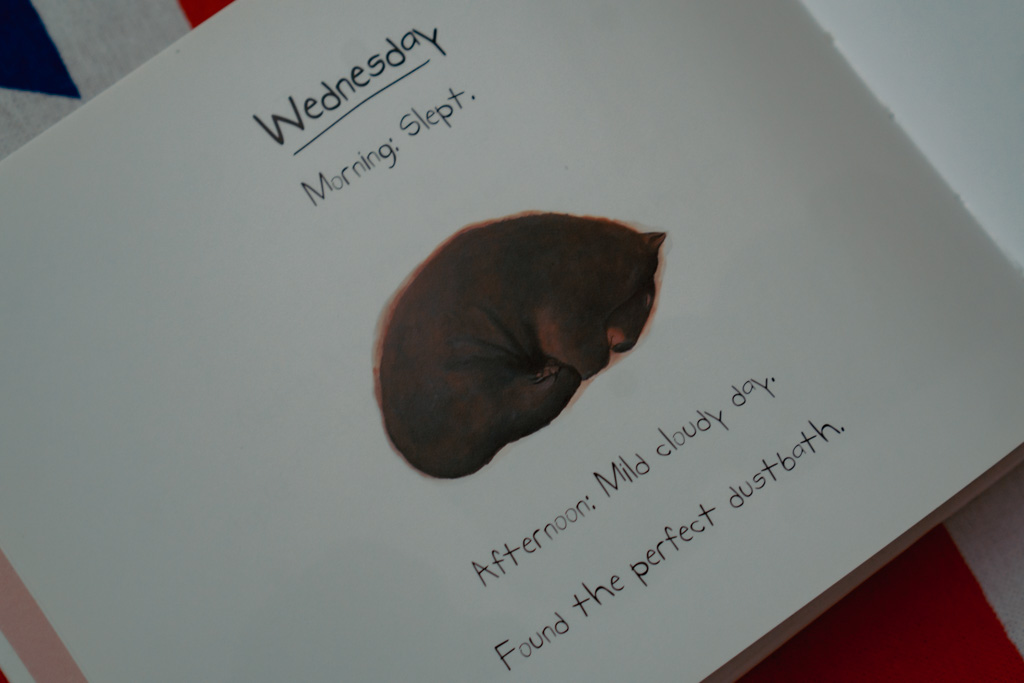 Wednesday
Morning: Slept.
Afternoon: Mild cloudy day.
Found the perfect dustbath.